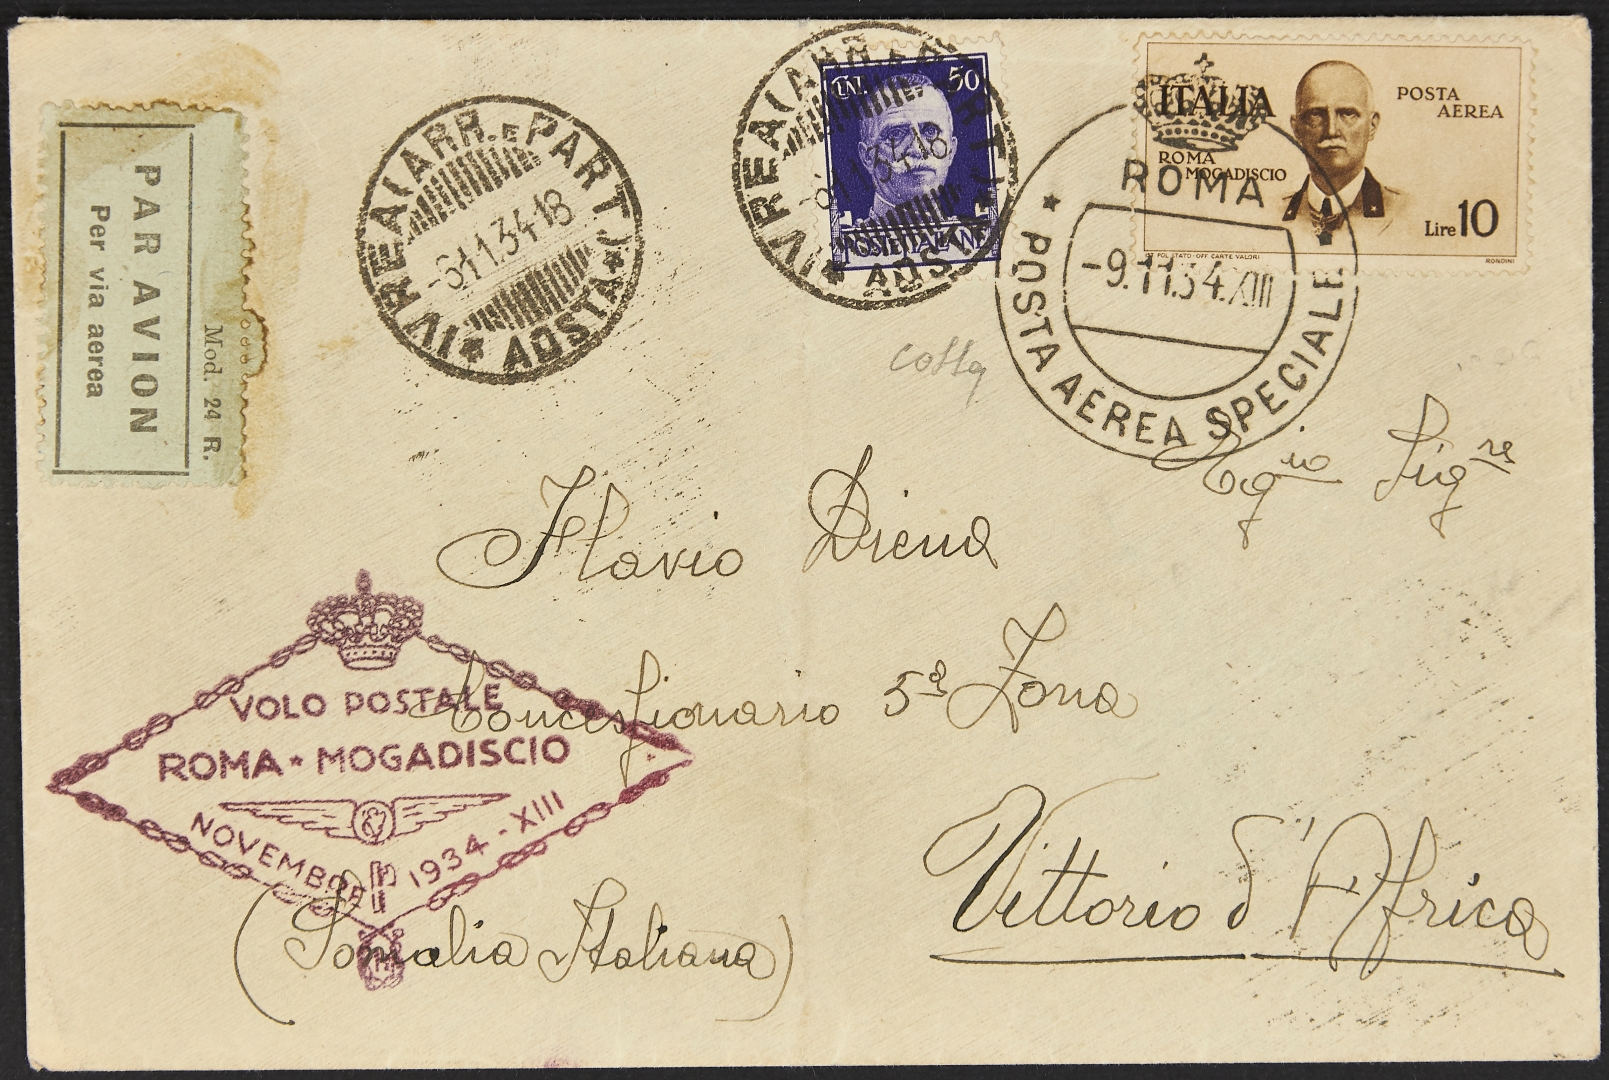 PAR AVION
Per via aerea
Mod. 24 R.
IVREA (ARR. E PART.)
-6.11.34.18
* AOSTA *
IVREA (ARR. E PART.)
-6.11.34.18
* AOSTA *
CENT. 50
POSTE ITALIANE
ITALIA
POSTA
AEREA
ROMA
MOGADISCIO
Lire 10
IST. POL. STATO-OFF. CARTE VALORI
RONDINI
ROMA
-9.11.34.XIII
* POSTA AEREA SPECIALE *
costa
Egrio Sigre
Flavio Diena
Concessionario 5ª Zona
Vittorio d'Africa
(Somalia Italiana)
VOLO POSTALE
ROMA * MOGADISCIO
NOVEMBRE 1934-XIII